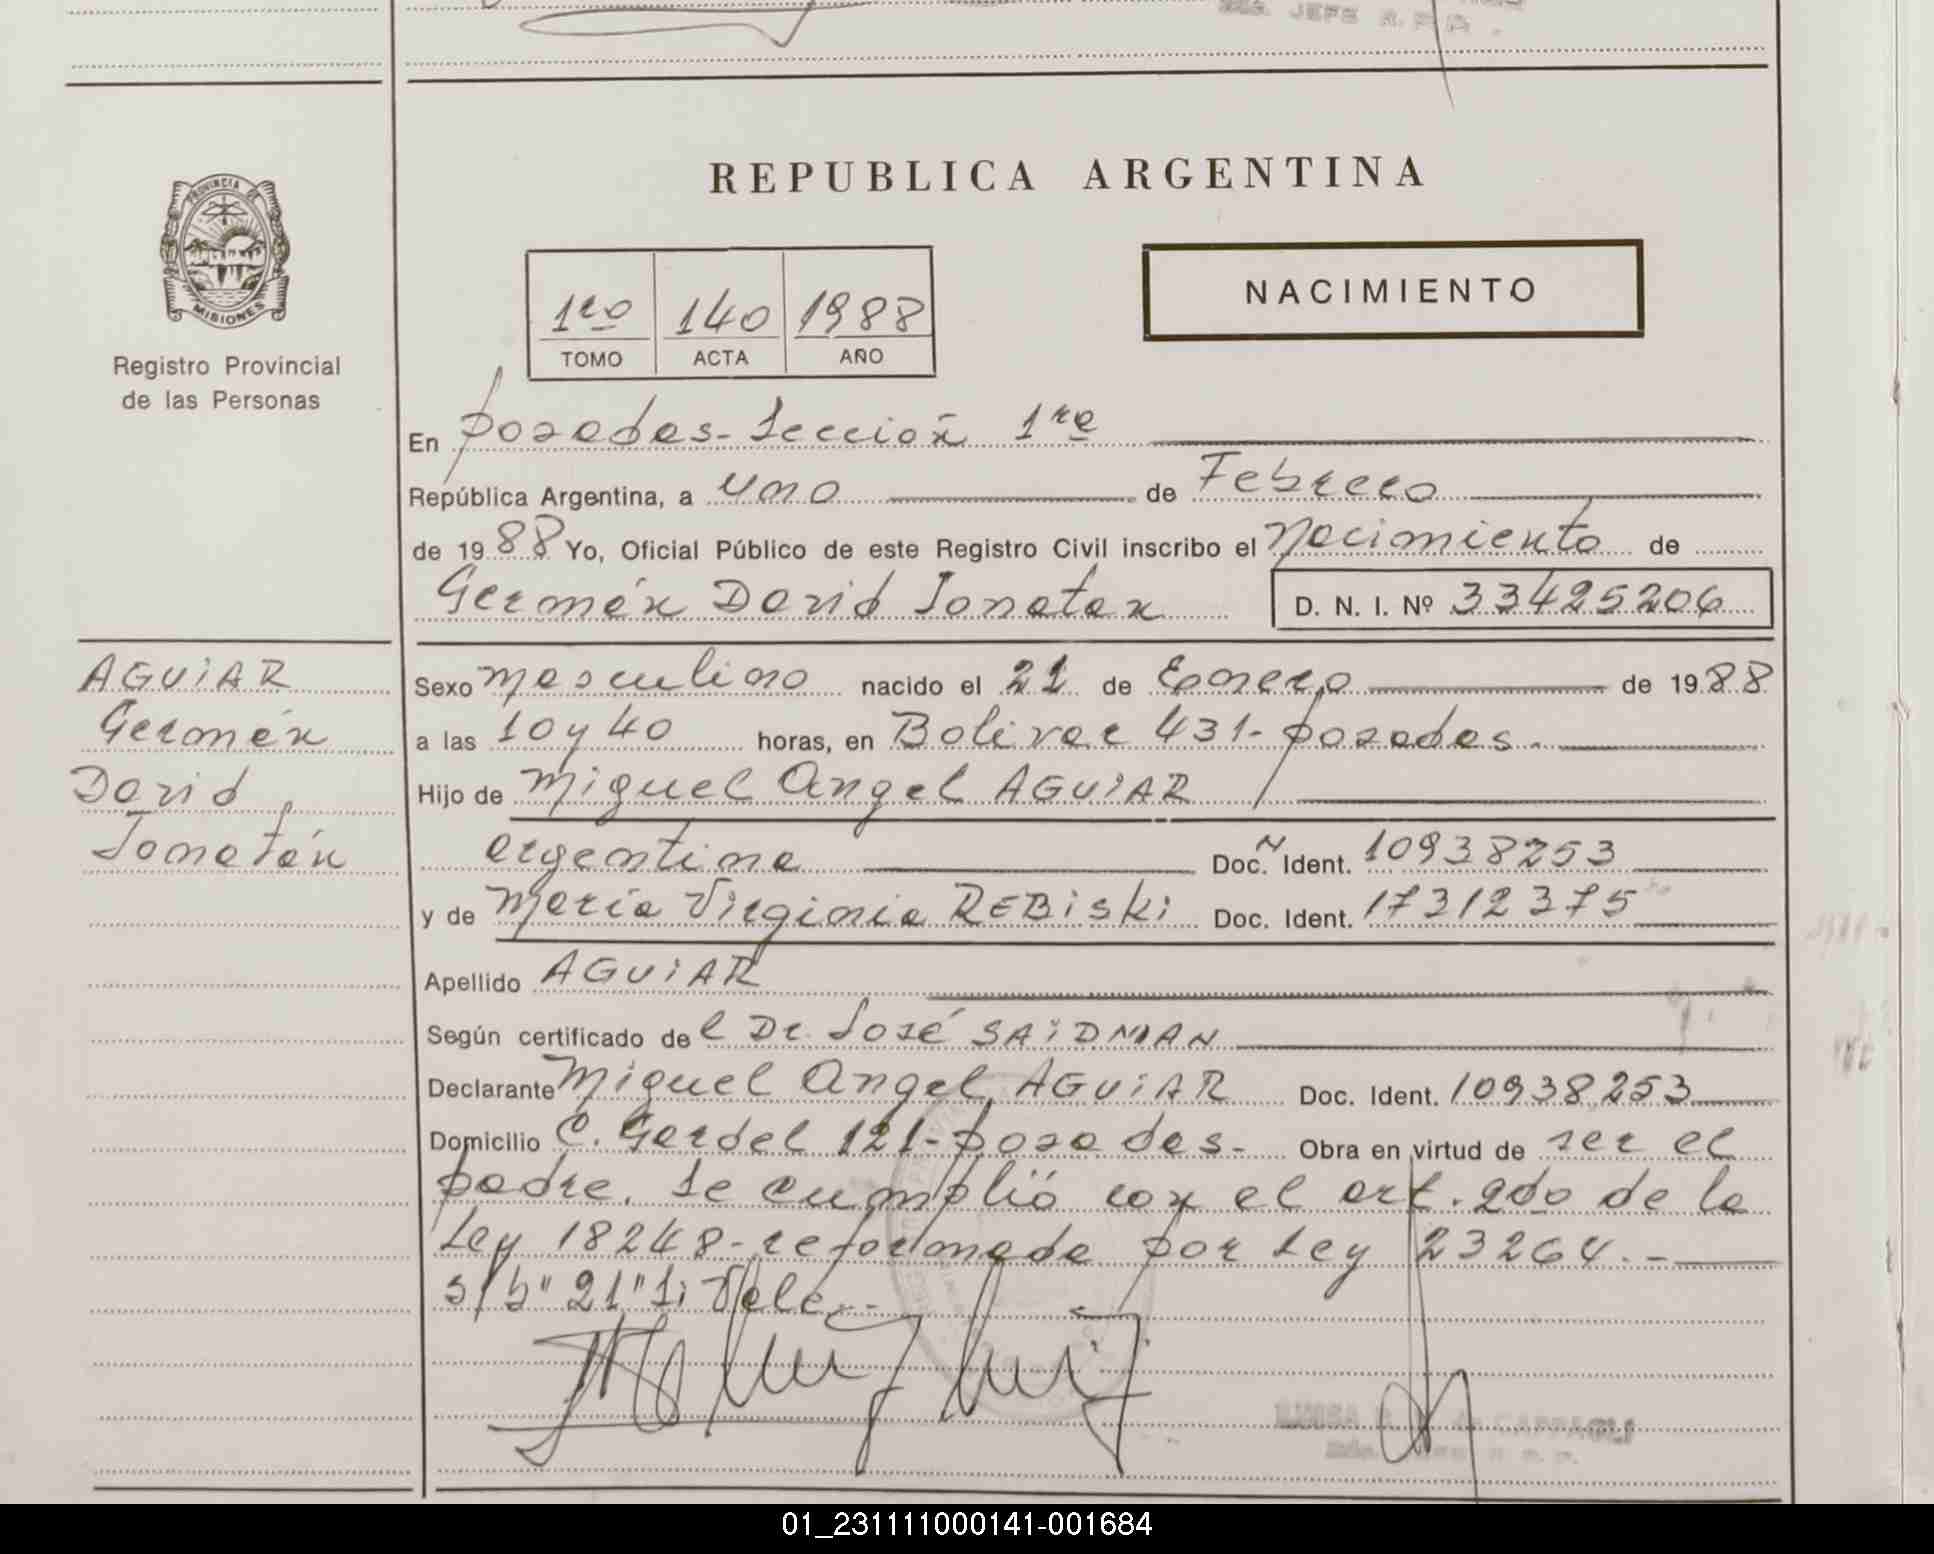 JEFE R. P. P.
REPUBLICA ARGENTINA
PROVINCIA DE
MISIONES
Registro Provincial
de las Personas
1ro 140 1988
TOMO ACTA AÑO
NACIMIENTO
En posadas - Sección 1ra
República Argentina, a uno de Febrero
de 1988 Yo, Oficial Público de este Registro Civil inscribo el Nacimiento de
Germán David Jonatan D. N. I. Nº 33425206
AGUiAR
Germán
David
Jonatán
Sexo masculino nacido el 21 de Enero de 1988
a las 10 y 40 horas, en Bolivar 431 - posadas.
Hijo de Miguel Angel AGUiAR
argentina Doc. Ident. 10938253
y de María Virginia REBiski Doc. Ident. 17312375
Apellido AGUiAR
Según certificado de l Dr. José SAiDMAN
Declarante Miguel Angel AGUiAR Doc. Ident. 10938253
Domicilio C. Gardel 121 - posadas - Obra en virtud de ser el
padre. Se cumplió con el art. 2do de la
Ley 18248 - reformada por Ley 23264. -
s/b "21" Si Vale. -
LUISA de CAPPAGLI
01_231111000141-001684